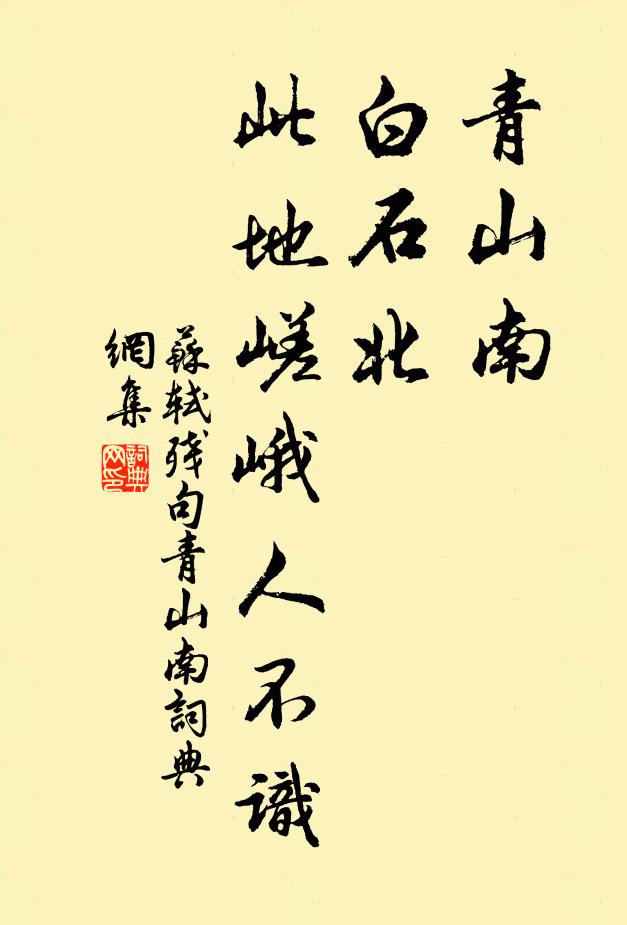 青山南
白石北
此地嵯峨人不識
蘇軾残句青山南詞典
網集
詞典
网印